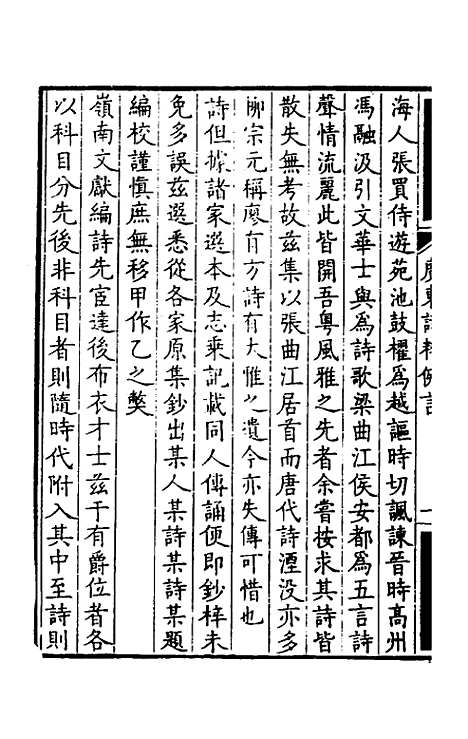 海人張買侍遊苑池鼓櫂為越謳時切諷諫晉時高州
馮融汲引文華士與為詩歌梁曲江侯安都為五言詩
聲情流麗此皆開吾粤風雅之先者余嘗按求其詩皆
散失無考故茲集以張曲江居首而唐代詩湮没亦多
柳宗元稱廖有方詩有大雅之遺今亦失傳可惜也
詩但據諸家選本及志乘記載同人傳誦便即鈔梓未
免多誤茲選悉從各家原集鈔出某人某詩某題
編校謹慎庶無移甲作乙之獘
嶺南文獻編詩先宦達後布衣才士茲于有爵位者各
以科目分先後非科目者則隨時代附入其中至詩則
廣東詩粹例言
一